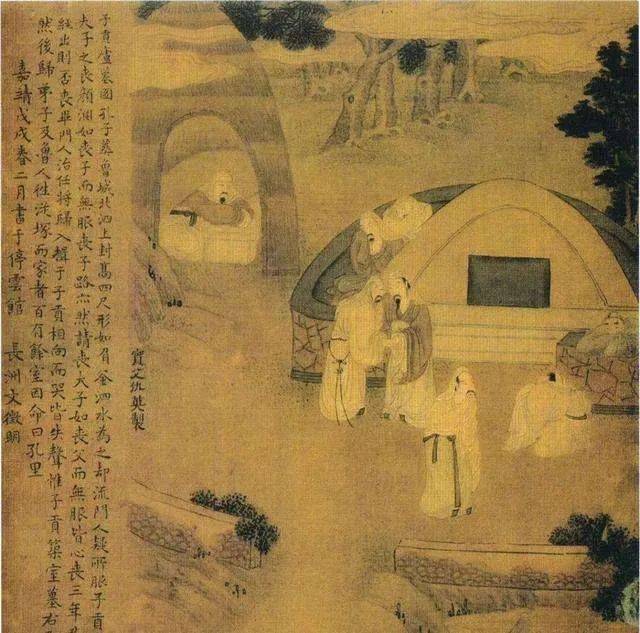 實父仇英製
子貢廬墓圖 孔子葬魯城北泗上封髙四尺形如釜泗水為之却流門人疑所服子貢
夫子之喪顏淵如喪子而無服喪子路亦然請喪夫子如喪父而無服皆心喪三年
絰出則否喪畢門人治任將歸入揖于子貢相向而哭皆失聲惟子貢築室墓右
然後歸弟子及魯人往從塚而家者百有餘室因命曰孔里
嘉靖戊戌春二月書于停雲館 長洲文徵明